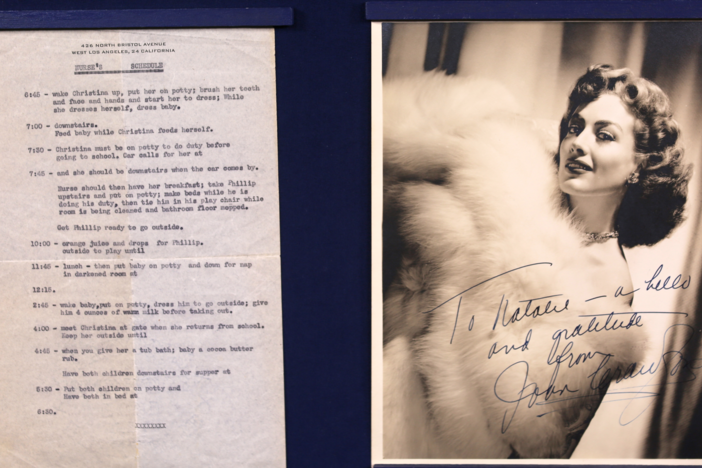 426 NORTH BRISTOL AVENUE
WEST LOS ANGELES, 24 CALIFORNIA
NURSE'S SCHEDULE
6:45 - wake Christina up, put her on potty; brush her teeth
and face and hands and start her to dress; While
she dresses herself, dress baby.
7:00 - downstairs.
Feed baby while Christina feeds herself.
7:30 - Christina must be on potty to do duty before
going to school. Car calls for her at
7:45 - and she should be downstairs when the car comes by.
Nurse should then have her breakfast; take Phillip
upstairs and put on potty; make beds while he is
doing his duty, then tie him in his play chair while
room is being cleaned and bathroom floor mopped.
Get Phillip ready to go outside.
10:00 - orange juice and drops for Phillip.
outside to play until
11:45 - lunch - then put baby on potty and down for nap
in darkened room at
12:15.
2:45 - wake baby,put on potty, dress him to go outside; give
him 4 ounces of milk before taking out.
4:00 - meet Christina at gate when she returns from school.
Keep her outside until
4:45 - when you give her a tub bath; baby a cocoa butter
rub.
Have both children downstairs for supper at
5:30 - Put both children on potty and
Have both in bed at
6:30.
XXXXXXXX
To Natalie - a hello
and gratitude
from
Joan Crawford